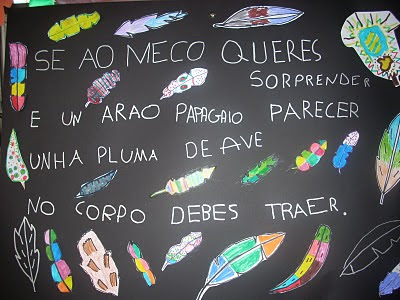 SE AO MECO QUERES
SORPRENDER
E UN ARAO PAPAGAIO PARECER
UNHA PLUMA DE AVE
NO CORPO DEBES TRAER.